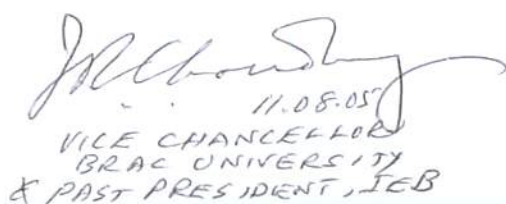 JRChoudhury
11.08.05
VICE CHANCELLOR
BRAC UNIVERSITY
& PAST PRESIDENT, IEB